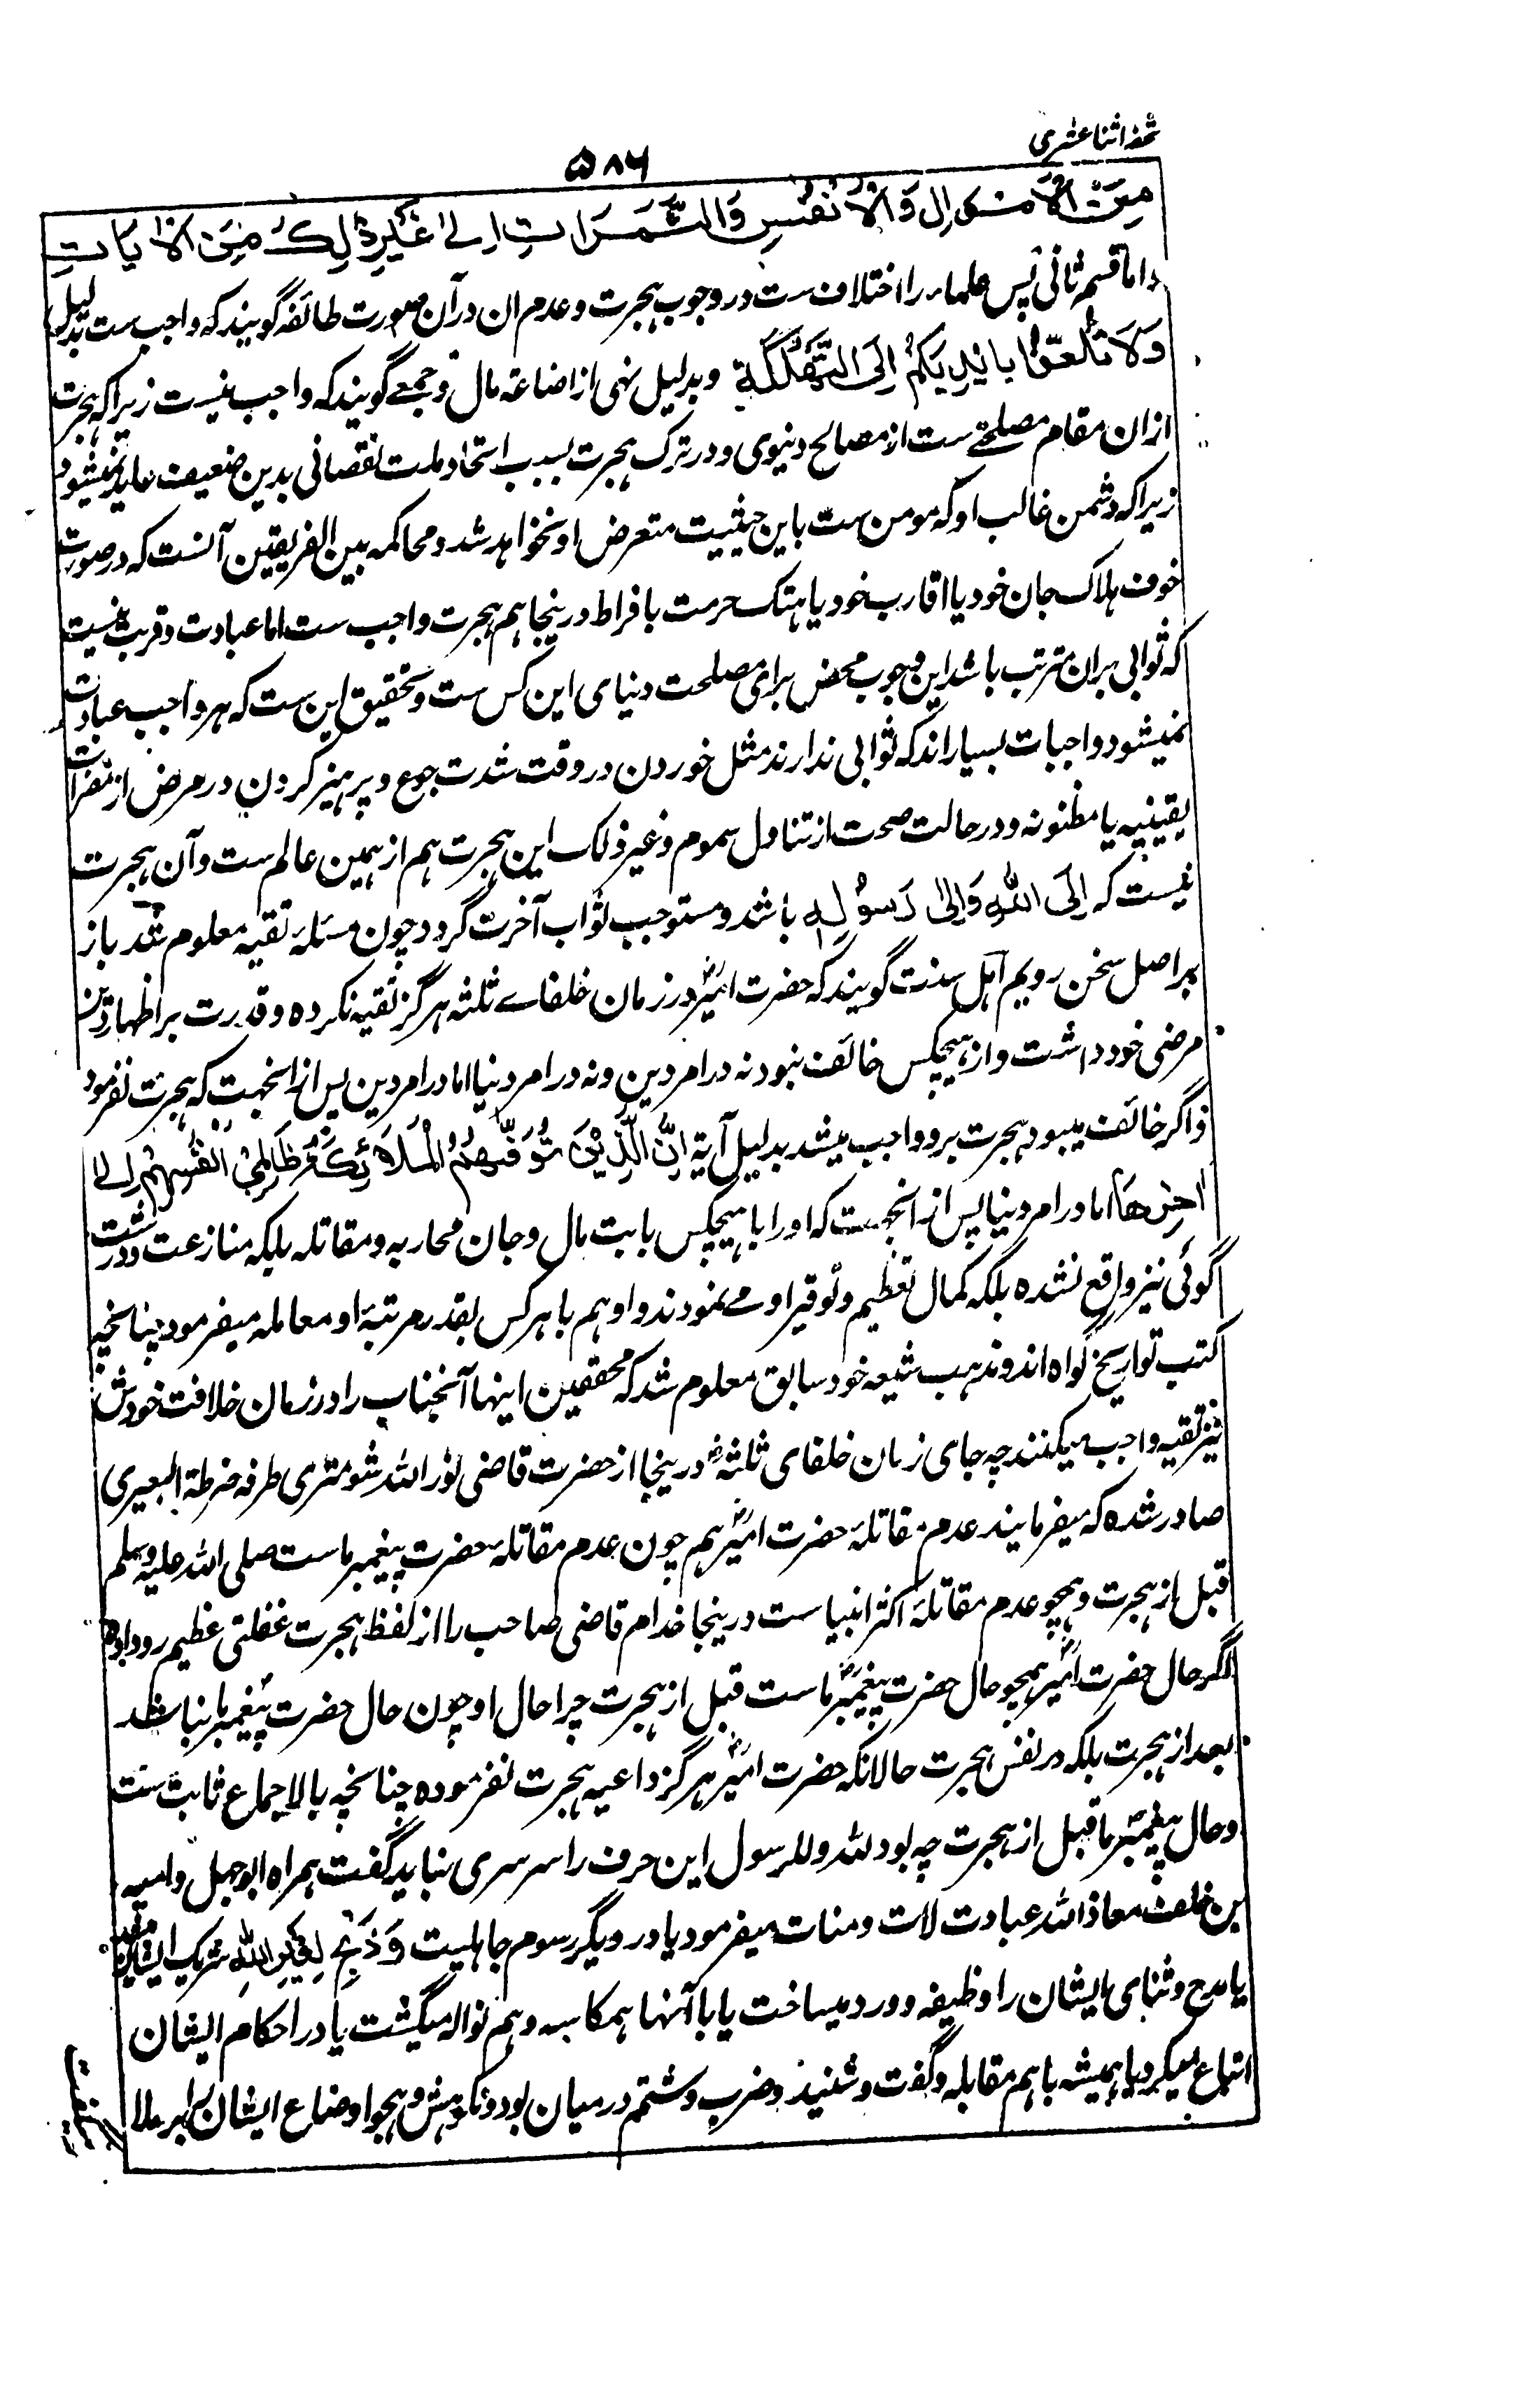 تحفه اثنا عشری
۵۸۶
مِنَ الْأَمْوَالِ وَالْأَنْفُسِ وَالثَّمَرَاتِ الے غَيْرِ ذٰلِكَ مِنَ الْآيَاتِ
و اما قسم ثانی پس علماء را اختلاف ست در وجوب هجرت و عدم ان در آن صورت طائفه گویند که واجب ست بدلیل
وَلَا تُلْقُوا بِاَيْدِيكُمْ اِلَى التَّهْلُكَةِ و بدلیل نهی از اضاعة مال و جمعے گویند که واجب نیست زیرا که هجرت
از ان مقام مصلحتے ست از مصالح دنیوی و در ترک هجرت بسبب اتحاد ملت نقصانی بدین ضعیف عاید نمیشود
زیرا که دشمن غالب او که مومن ست باین حیثیت متعرض او نخواهد شد و محاکمه بین الفریقین آنست که در صورت
خوف هلاک جان خود یا اقارب خود یا هتک حرمت بافراط درینجا هم هجرت واجب ست اما عبادت و قربت نیست
که ثوابی بران مترتب باشد این وجوب محض برای مصلحت دنیای این کس ست و تحقیق این ست که هر واجب عبادت
نمیشود و واجبات بسیار اند که ثوابی ندارند مثل خوردن در وقت شدت جوع و پرهیز کردن در مرض از مضرات
یقینیه یا مظنونه و در حالت صحت از تناول سموم و غیر ذلک این هجرت هم از همین عالم ست و آن هجرت
نیست که اِلَى اللهِ وَاِلٰى رَسُوْلِهٖ باشد و مستوجب ثواب آخرت گردد چون مسئلۂ تقیه معلوم شد باز
بر اصل سخن رویم اهل سنت گویند که حضرت امیرؓ در زمان خلفاے ثلثه هرگز تقیه نکرده و قدرت بر اظهار دین
مرضی خود داشت و از هیچکس خائف نبود نه در امر دین و نه در امر دنیا اما در امر دین پس از انجهت که هجرت نفرمود
و اگر خائف میبود هجرت برو واجب میشد بدلیل آیة اِنَّ الَّذِيْنَ تَوَفّٰهُمُ الْمَلَائِكَةُ ظَالِمِيْ اَنْفُسِهِمْ الے
اٰخرها اما در امر دنیا پس از انجهت که او را با هیچکس بابت مال و جان محاربه و مقاتله بلکه منازعت و درشت
گوئی نیز واقع نشده بلکه کمال تعظیم و توقیر او مے نمودند و او هم با هر کس بقدر مرتبۂ او معامله میفرمود چنانچه
کتب تواریخ گواه اند و مذهب شیعه خود سابق معلوم شد که محققین اینها آنجناب را در زمان خلافت خودش
نیز تقیه واجب میکنند چه جای زمان خلفای ثلثهؓ درینجا از حضرت قاضی نور الله شومتری طرفه ضرطة البعیری
صادر شده که میفرمایند عدم مقاتلۂ حضرت امیرؓ هم چون عدم مقاتلۂ حضرت پیغمبر ماست صلی الله علیه وسلم
قبل از هجرت و همچو عدم مقاتلۂ اکثر انبیاست درینجا خدام قاضی صاحب را از لفظ هجرت غفلتی عظیم رو داده
اگر حال حضرت امیرؓ همچو حال حضرت پیغمبر ماست قبل از هجرت چرا حال او چون حال حضرت پیغمبر ما نباشد
بعد از هجرت بلکه در نفس هجرت حالانکه حضرت امیرؓ هرگز داعیه هجرت نفرموده چنانچه بالاجماع ثابت ست
و حال پیغمبر ما قبل از هجرت چه بود لله و للرسول این حرف را سرسری نباید گفت همراه ابوجهل و امیه
بن خلف معاذ الله عبادت لات و منات میفرمود یا در دیگر رسوم جاهلیت وَ ذَبْح لِغَيْرِ اللهِ شریک ایشان
یا مدح و ثنای ایشان را وظیفه و ورد میساخت یا با آنها همکاسه و هم نواله میگشت یا در احکام ایشان
اتباع میکرد یا همیشه باهم مقابله و گفت و شنید و ضرب و شتم درمیان بود و نکوهش و هجو اوضاع ایشان برابر ملا